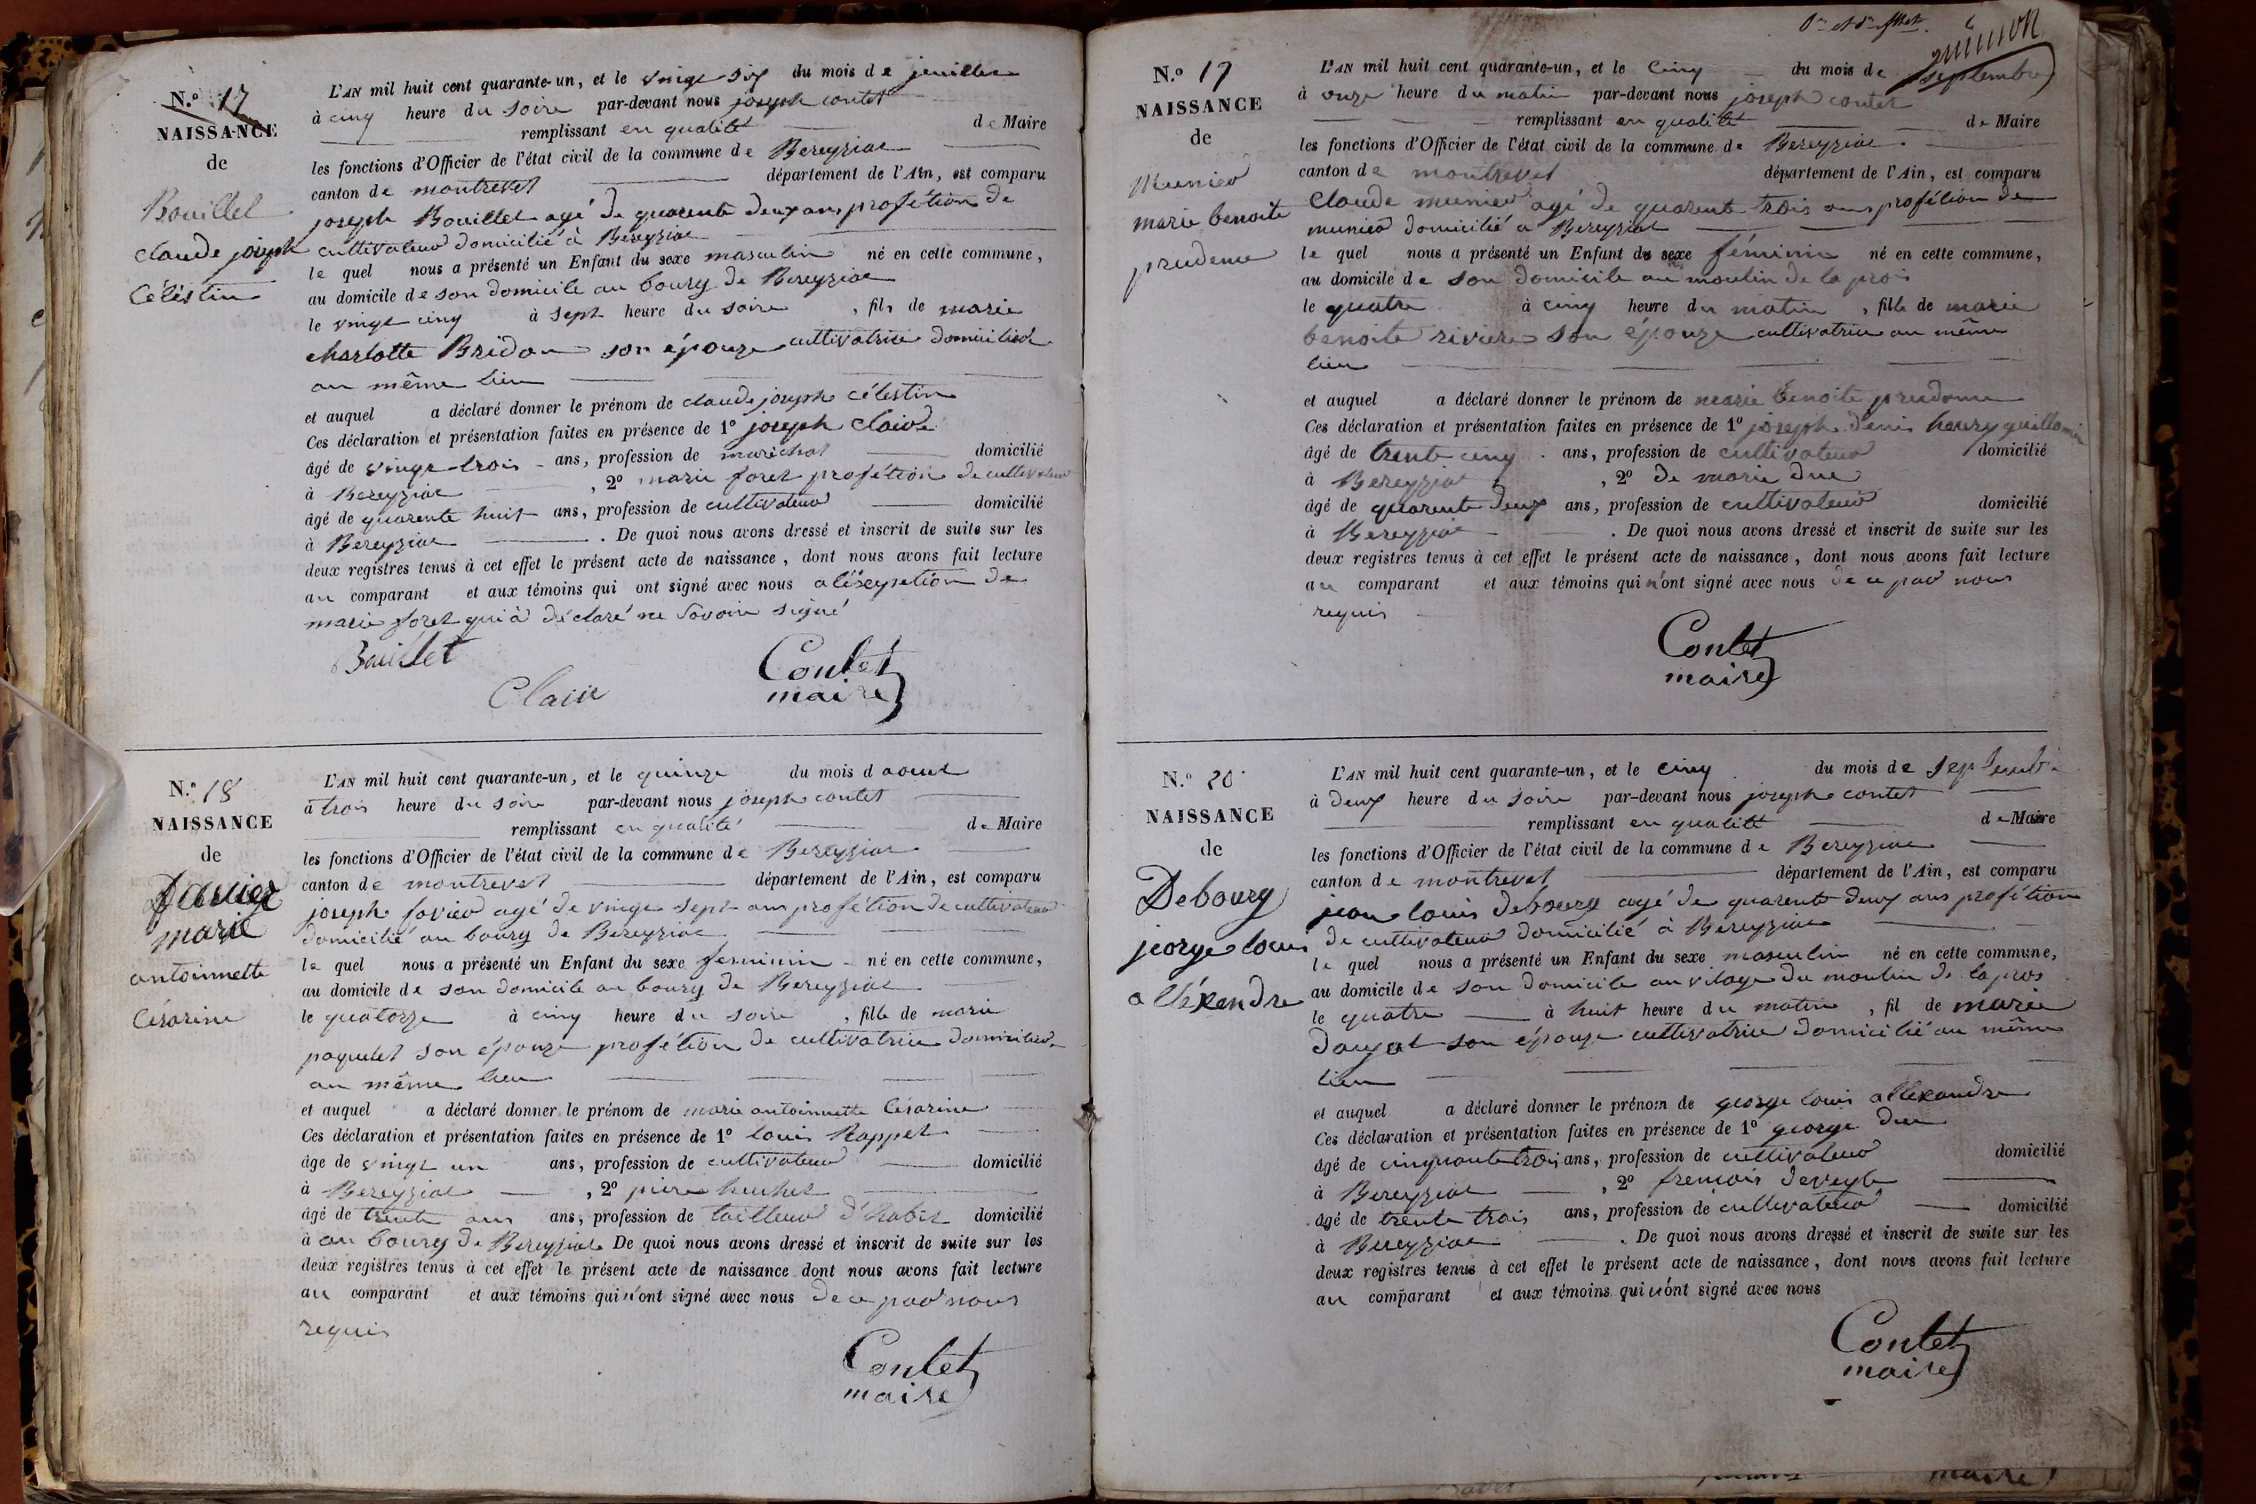 N.º 17
NAISSANCE
de
Bouillet
claude joseph
Céléstin
L'AN mil huit cent quarante-un, et le vingt six du mois de jeuillet
à cinq heure du soire par-devant nous joseph contet
remplissant en qualité de Maire
les fonctions d'Officier de l'état civil de la commune de Bereyziat
canton de montrevet département de l'Ain, est comparu
joseph Bouillet agé de quarente deux ans profétion de
cultivateur domicilié à Bereyziat
le quel nous a présenté un Enfant du sexe masculin né en cette commune,
au domicile de son domicile au bourg de Bereyziat
le vingt cinq à sept heure du soire, fils de marie
charlotte Bridon son épouze cultivatrice domiciliée
au même lieu
et auquel a déclaré donner le prénom de claude joseph célestin
Ces déclaration et présentation faites en présence de 1º joseph Clair
âgé de vingt-trois ans, profession de maréchal domicilié
à Bereyziat, 2º marie foret profétion de cultivateur
âgé de quarente huit ans, profession de cultivateur domicilié
à Bereyziat. De quoi nous avons dressé et inscrit de suite sur les
deux registres tenus à cet effet le présent acte de naissance, dont nous avons fait lecture
au comparant et aux témoins qui ont signé avec nous a léxeption de
marie foret qui à déclaré ne savoir signé
Bouillet
Clair
Contet
maire
N.º 18
NAISSANCE
de
marie
antoinnette
Césarine
L'AN mil huit cent quarante-un, et le quinze du mois d aout
à trois heure du soire par-devant nous joseph contet
remplissant en qualité de Maire
les fonctions d'Officier de l'état civil de la commune de Bereyziat
canton de montrevet département de l'Ain, est comparu
joseph favier agé de vingt sept ans profétion de cultivateur
domicilié au bourg de Bereyziat
le quel nous a présenté un Enfant du sexe feminin né en cette commune,
au domicile de son domicile au bourg de Bereyziat
le quatorze à cinq heure du soire, fille de marie
paquelet son épouze profétion de cultivatrice domiciliée
au même lieu
et auquel a déclaré donner le prénom de marie antoinnette Césarine
Ces déclaration et présentation faites en présence de 1º louis Rappet
âge de vingt un ans, profession de cultivateur domicilié
à Bereyziat, 2º piere
âgé de trente ans ans, profession de tailleur d'habit domicilié
à au bourg de Bereyziat De quoi nous avons dressé et inscrit de suite sur les
deux registres tenus à cet effet le présent acte de naissance dont nous avons fait lecture
au comparant et aux témoins qui n'ont signé avec nous de ce par nous
requis
Contet
maire
N.º 19
NAISSANCE
de
Munier
marie benoite
prudence
L'AN mil huit cent quarante-un, et le cinq du mois de septembre
à onze heure du matin par-devant nous joseph contet
remplissant en qualité de Maire
les fonctions d'Officier de l'état civil de la commune de Bereyziat
canton de montrevet département de l'Ain, est comparu
Claude munier agé de quarente trois ans profétion de
munier domicilié a Bereyziat
le quel nous a présenté un Enfant du sexe féminin né en cette commune,
au domicile de son domicile au moulin de la pros
le quatre à cinq heure du matin, fille de marie
benoite riviere son épouze cultivatrice au même
lieu
et auquel a déclaré donner le prénom de marie benoite
Ces déclaration et présentation faites en présence de 1º joseph denis henry guillomin
âgé de trente cinq ans, profession de cultivateur domicilié
à Bereyziat, 2º de marie duc
âgé de quarente deux ans, profession de cultivateur domicilié
à Bereyziat. De quoi nous avons dressé et inscrit de suite sur les
deux registres tenus à cet effet le présent acte de naissance, dont nous avons fait lecture
au comparant et aux témoins qui n'ont signé avec nous de ce par nous
requis
Contet
maire
N.º 20
NAISSANCE
de
Debourg
jeorge louis
alléxandre
L'AN mil huit cent quarante-un, et le cinq du mois de septembre
à deux heure du soire par-devant nous joseph contet
remplissant en qualité de Maire
les fonctions d'Officier de l'état civil de la commune de Bereyziat
canton de montrevet département de l'Ain, est comparu
jean louis debourg agé de quarente deux ans profétion
de cultivateur domicilié à Bereyziat
le quel nous a présenté un Enfant du sexe masculin né en cette commune,
au domicile de son domicile au vilage du moulin de la pros
le quatre à huit heure du matin, fil de marie
son épouze cultivatrice domicilié au même
lieu
et auquel a déclaré donner le prénom de george louis allexandre
Ces déclaration et présentation faites en présence de 1º george duc
âgé de cinquante trois ans, profession de cultivateur domicilié
à Bereyziat, 2º frencois deveyle
âgé de trente trois ans, profession de cultivateur domicilié
à Bereyziat. De quoi nous avons dressé et inscrit de suite sur les
deux registres tenus à cet effet le présent acte de naissance, dont nous avons fait lecture
au comparant et aux témoins qui n'ont signé avec nous
Contet
maire
maire